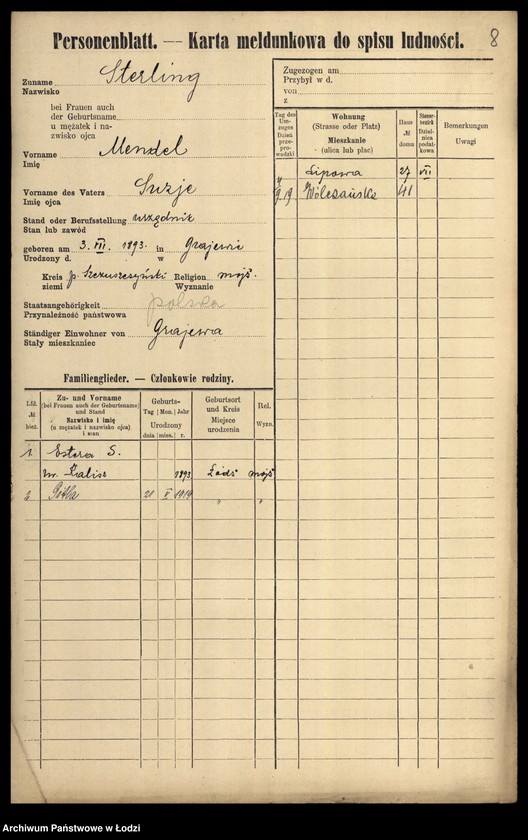 Personenblatt. — Karta meldunkowa do spisu ludności. 8
Zuname Sterling
Nazwisko
bei Frauen auch
der Geburtsname
u mężatek i na-
zwisko ojca
Vorname Mendel
Imię
Vorname des Vaters
Imię ojca
Stand oder Berufsstellung urzędnik
Stan lub zawód
geboren am 3. VII. 1893. in Grajewie
Urodzony d. w
Kreis p. Szczuczyński Religion mojż.
ziemi Wyznanie
Staatsangehörigkeit polska
Przynależność państwowa
Ständiger Einwohner von Grajewa
Stały mieszkaniec
Zugezogen am
Przybył w d.
von
z
Tag des Um-zuges Dzień prze-prowadzki
Wohnung (Strasse oder Platz) Mieszkanie (ulica lub plac)
Haus № domu
Steuer-bezirk Dzielnica podat-kowa
Bemerkungen Uwagi
Lipowa 27 VII
9 19 Wólczańska 41
Familienglieder. — Członkowie rodziny.
Lfd. № bież.
Zu- und Vorname (bei Frauen auch der Geburtsname) und Stand Nazwisko i imię (u mężatek i nazwisko ojca) i stan
Geburts- Tag Mon. Jahr Urodzony dnia mies. r.
Geburtsort und Kreis Miejsce urodzenia
Rel. Wyzn.
1. Estera S.
ur. Kalisz 1893 Łódź mojż
2 21 V 1914 " "
Archiwum Państwowe w Łodzi